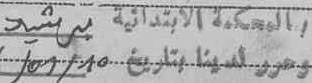 بالمحكمة الابتدائية برشيد
وحرر لدينا بتاريخ